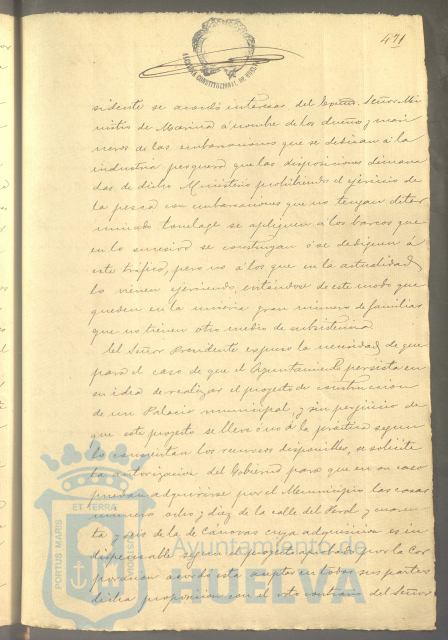 471
ALCALDIA CONSTITUCIONAL DE HUELVA
sidente se acordó interesar del Excmo. Señor Mi
nistro de Marina á nombre de los dueños y mari
neros de las embarcaciones que se dedican á la
industria pesquera que las disposiciones dimana
das de dicho Ministerio prohibiendo el ejercicio de
la pesca con embarcaciones que no tengan deter
minado tonelage se apliquen á los barcos que
en lo sucesivo se construyan ó se dediquen á
este tráfico, pero no á los que en la actualidad
lo vienen ejerciendo, evitándose de este modo que
queden en la miseria gran número de familias
que no tienen otro medio de subsistencia.
El Señor Presidente expuso la necesidad de que
para el caso de que el Ayuntamiento persista en
su idea de realizar el proyecto de construccion
de un Palacio municipal, y sin perjuicio de
que este proyecto se lleve ó no á la práctica segun
lo consientan los recursos disponibles, se solicite
la autorizacion del Gobierno para que en su caso
puedan adquirirse por el Municipio las casas
número ocho y diez de la calle del Hérol y cuaren
ta y seis de la de Cánovas cuya adquisicion es in
dispensable segun el proyecto aprobado por la Cor
poracion acordó esta aceptar en todas sus partes
dicha proposicion con el voto contrario del Señor
PORTUS MARIS ET TERRÆ CUSTODIA
Ayuntamiento de
HUELVA